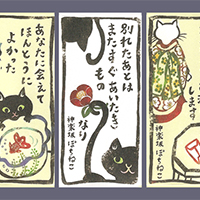 あなたに会えて
ほんとうに
よかった
別れたあとは
またすぐあいたき
ものなり
神楽坂 ぽちねこ
します
神楽坂 ぽちねこ